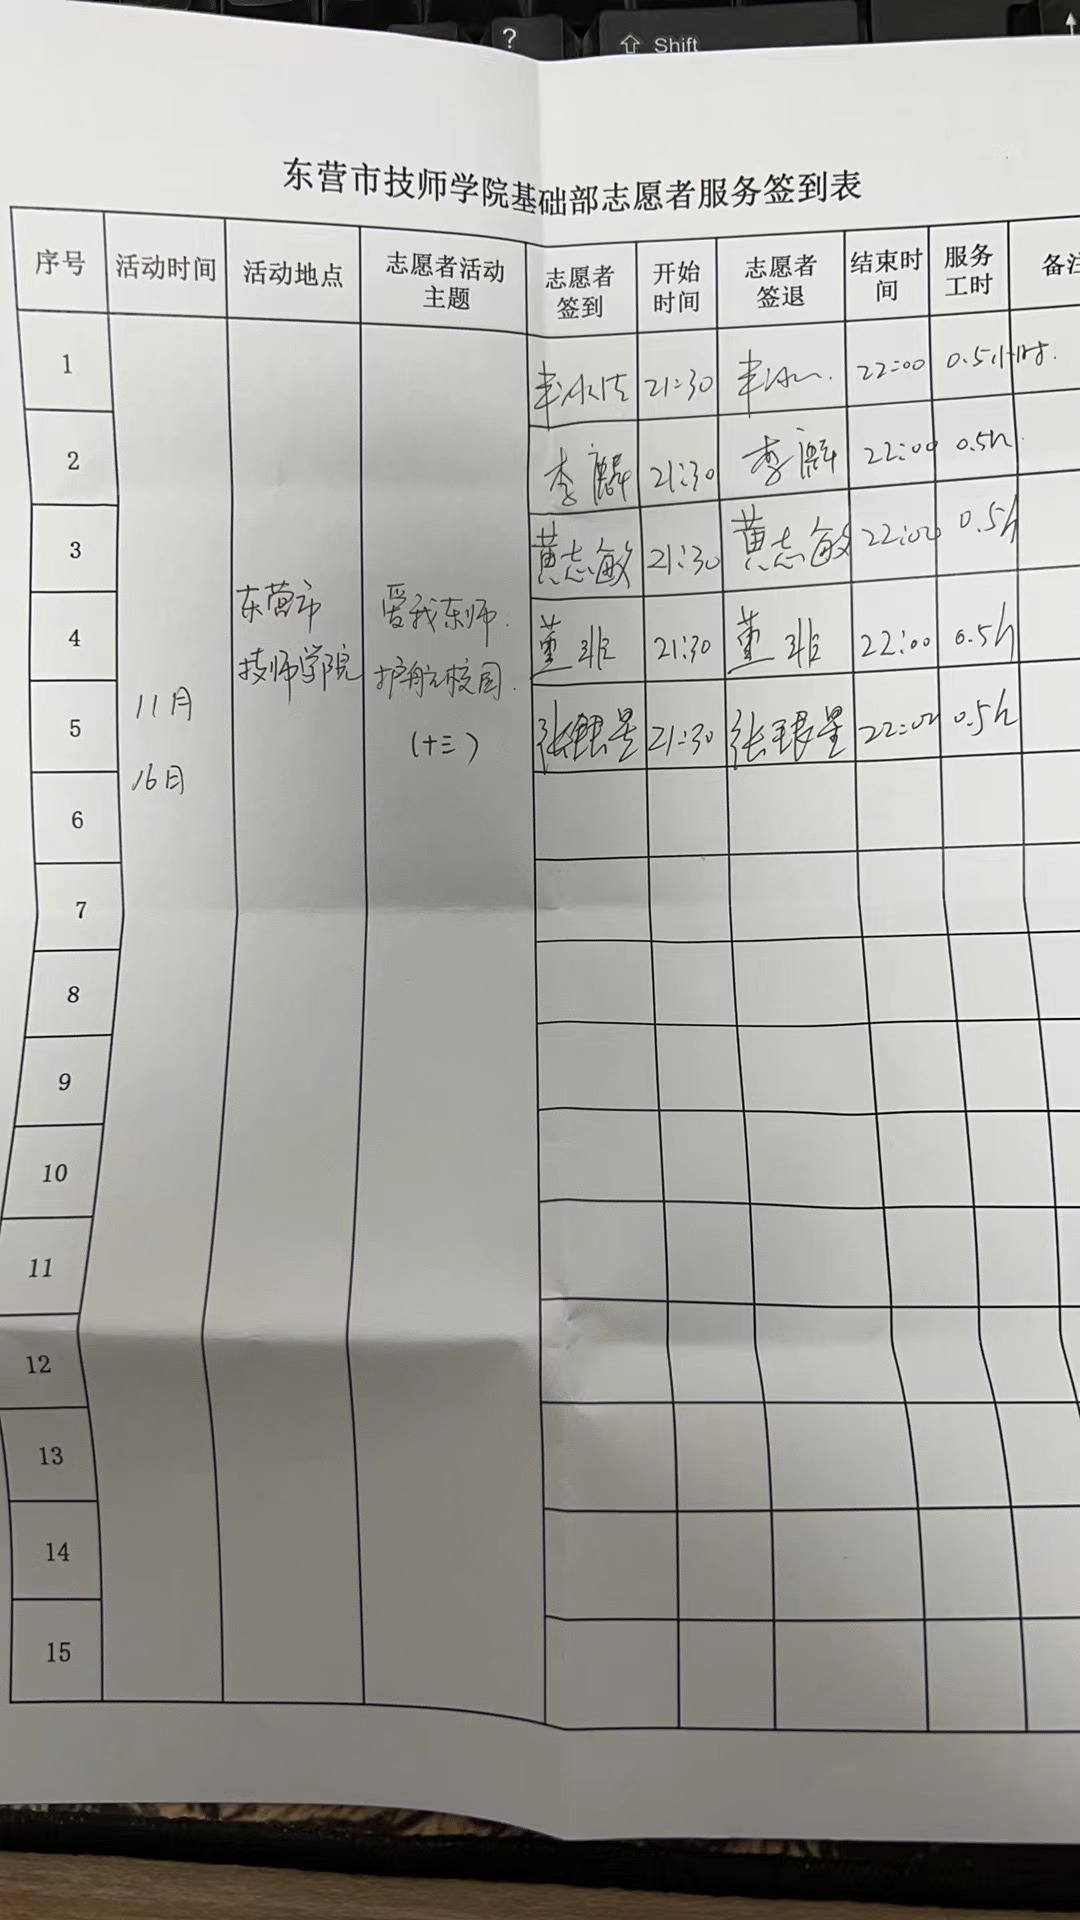 ?
Shift
东营市技师学院基础部志愿者服务签到表
序号 活动时间 活动地点 志愿者活动主题 志愿者签到 开始时间 志愿者签退 结束时间 服务工时 备注
11月
16日
东营市
技师学院
爱我东师
护航校园
(十三)
1 21:30 22:00 0.5小时.
2 李麟 21:30 李麟 22:00 0.5h
3 黄志敏 21:30 黄志敏 22:00 0.5h
4 董非 21:30 董非 22:00 0.5h
5 张银星 21:30 张银星 22:00 0.5h
6
7
8
9
10
11
12
13
14
15